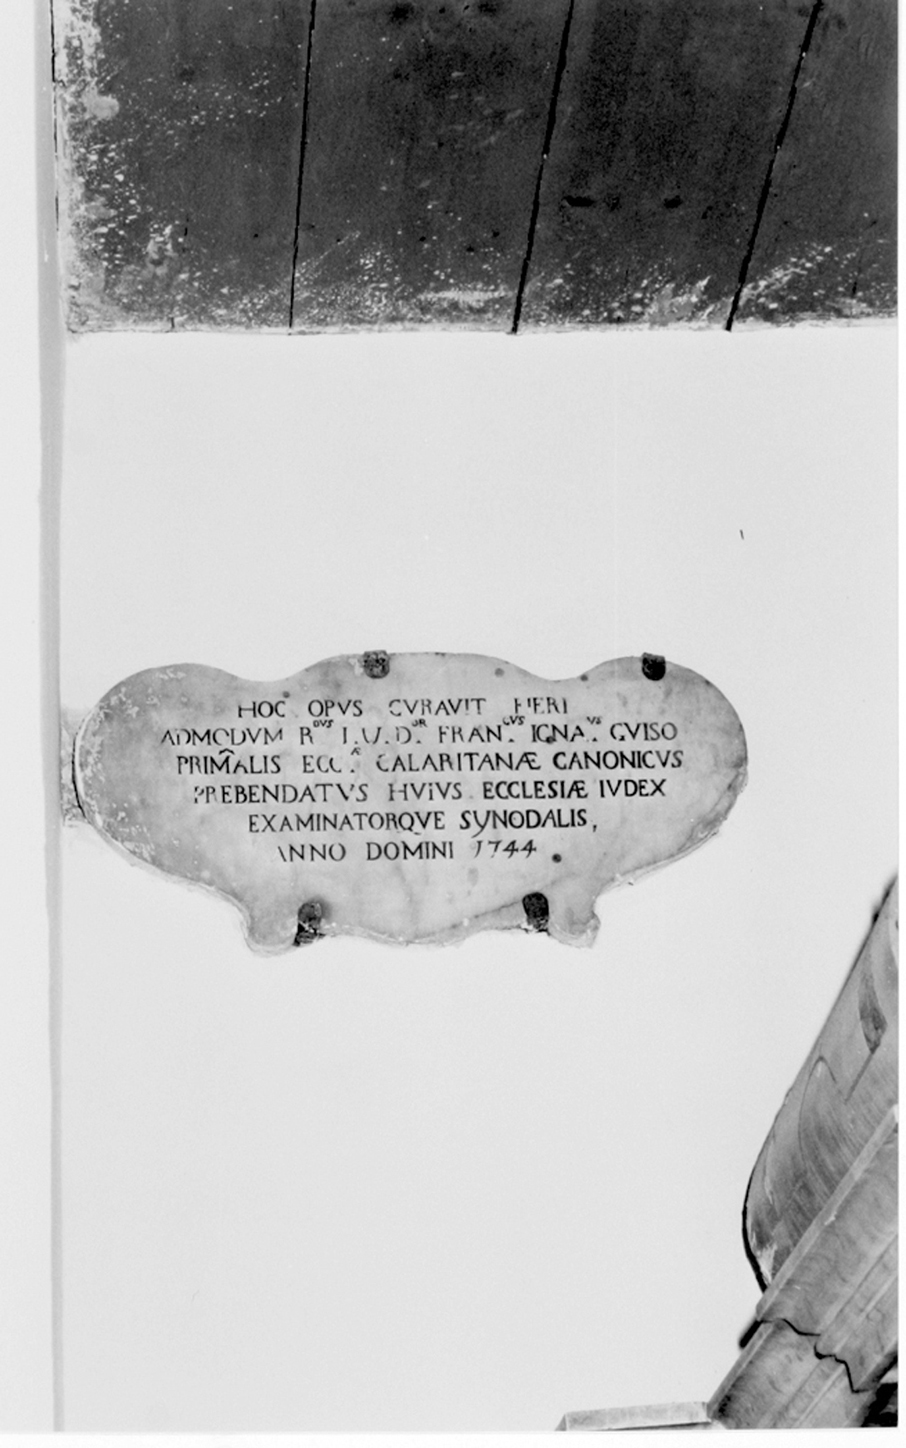 HOC OPVS CVRAVIT FIERI
ADMODVM R.DVS I.U.D.OR FRAN.CVS IGNA.VS GVISO
PRIM̂ALIS ECC.Æ CALARITANÆ CANONICVS
PREBENDATVS HVIVS ECCLESIÆ IVDEX
EXAMINATORQVE SYNODALIS,
ANNO DOMINI 1744